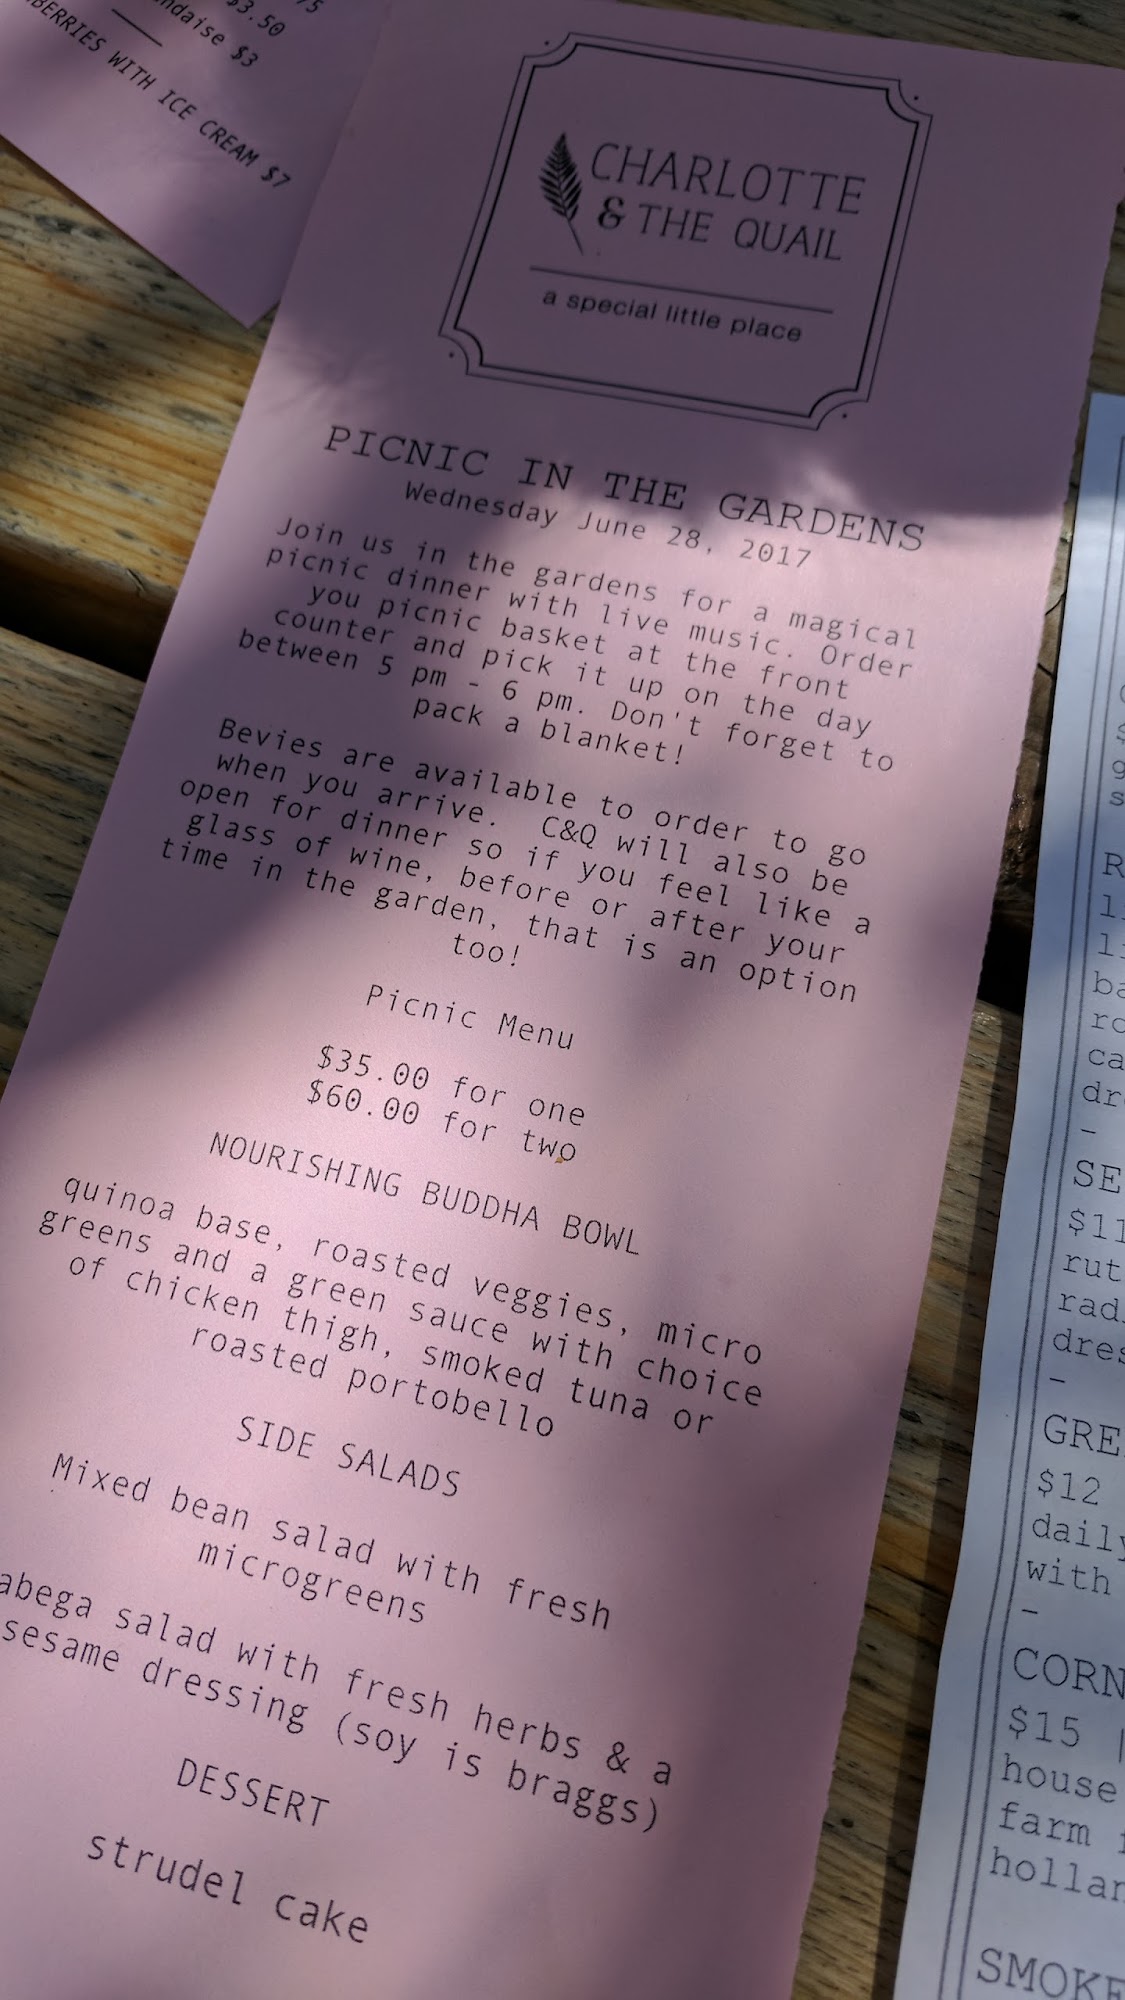 $3.50
$3
WITH ICE CREAM $7
CHARLOTTE
& THE QUAIL
a special little place
PICNIC IN THE GARDENS
Wednesday June 28, 2017
Join us in the gardens for a magical
picnic dinner with live music. Order
you picnic basket at the front
counter and pick it up on the day
between 5 pm - 6 pm. Don't forget to
pack a blanket!
Bevies are available to order to go
when you arrive. C&Q will also be
open for dinner so if you feel like a
glass of wine, before or after your
time in the garden, that is an option
too!
Picnic Menu
$35.00 for one
$60.00 for two
NOURISHING BUDDHA BOWL
quinoa base, roasted veggies, micro
greens and a green sauce with choice
of chicken thigh, smoked tuna or
roasted portobello
SIDE SALADS
Mixed bean salad with fresh
microgreens
salad with fresh herbs & a
sesame dressing (soy is braggs)
DESSERT
strudel cake
$12
with
CORN
$15 |
house
farm